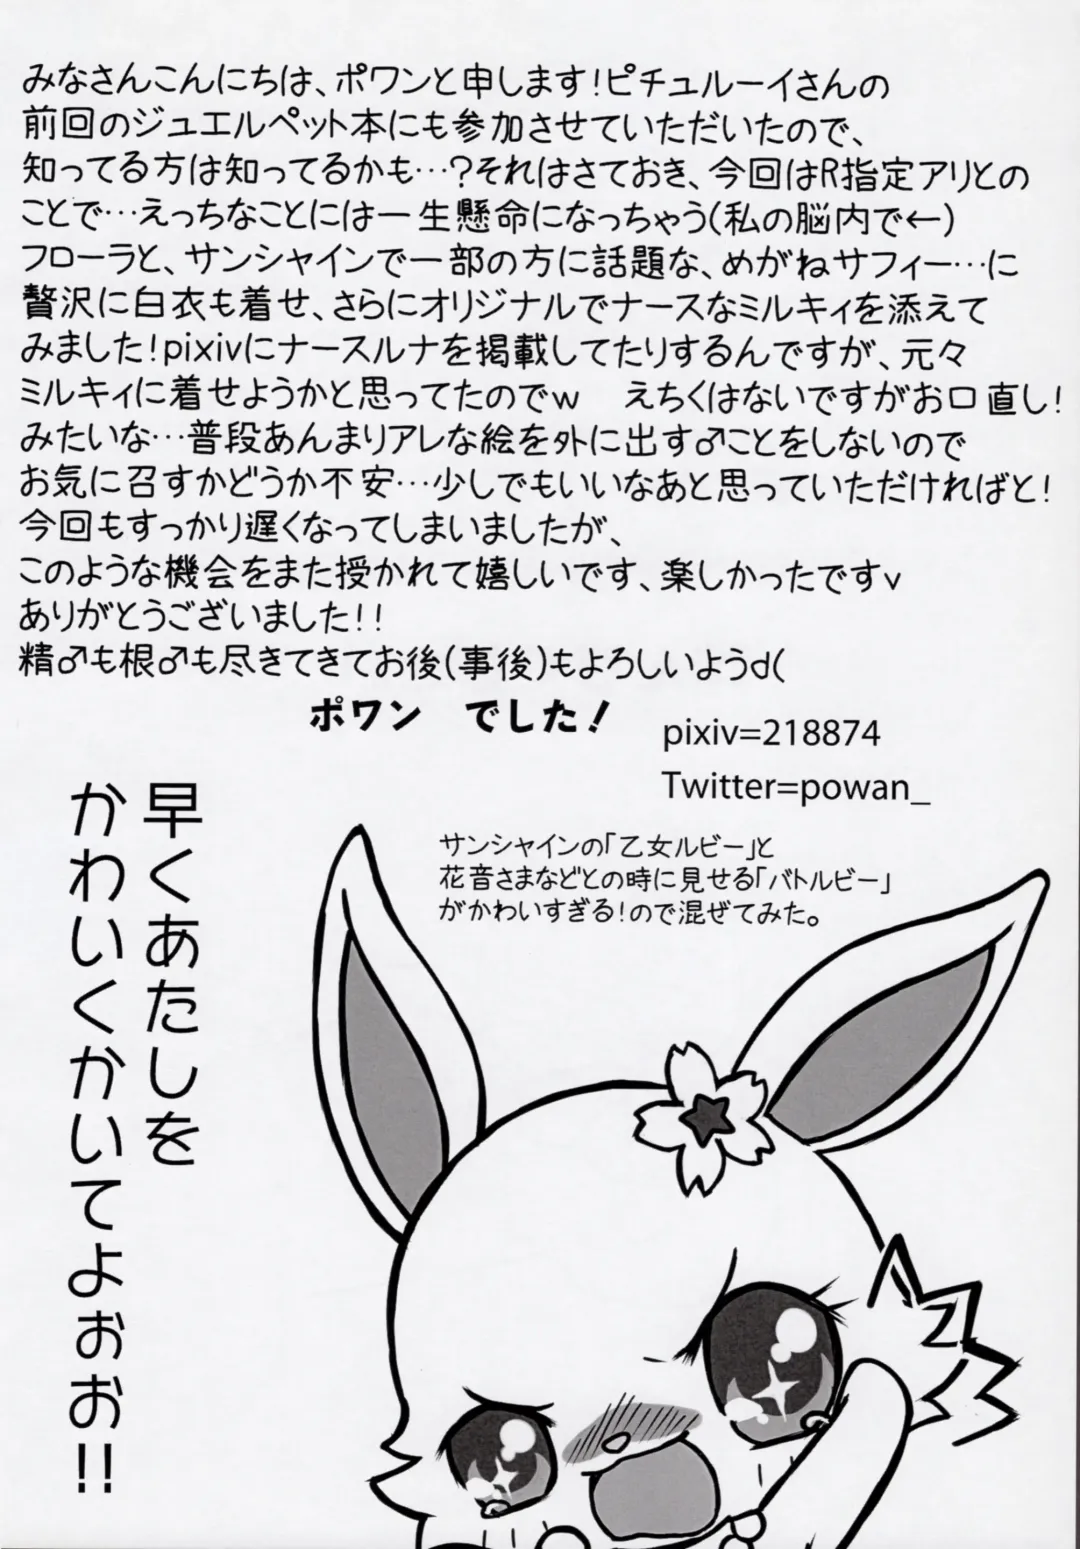 みなさんこんにちは、ポワンと申します！ピチュルーイさんの
前回のジュエルペット本にも参加させていただいたので、
知ってる方は知ってるかも…？それはさておき、今回はR指定アリとの
ことで…えっちなことには一生懸命になっちゃう(私の脳内で←)
フローラと、サンシャインで一部の方に話題な、めがねサフィー…に
贅沢に白衣も着せ、さらにオリジナルでナースなミルキィを添えて
みました！pixivにナースルナを掲載してたりするんですが、元々
ミルキィに着せようかと思ってたのでw　えちくはないですがお口直し！
みたいな…普段あんまりアレな絵を外に出す♂ことをしないので
お気に召すかどうか不安…少しでもいいなあと思っていただければと！
今回もすっかり遅くなってしまいましたが、
このような機会をまた授かれて嬉しいです、楽しかったですv
ありがとうございました！！
精♂も根♂も尽きてきてお後(事後)もよろしいようd(
ポワン　でした！
pixiv=218874
Twitter=powan_
サンシャインの「乙女ルビー」と
花音さまなどとの時に見せる「バトルビー」
がかわいすぎる！ので混ぜてみた。
早くあたしを
かわいくかいてよぉぉお！！